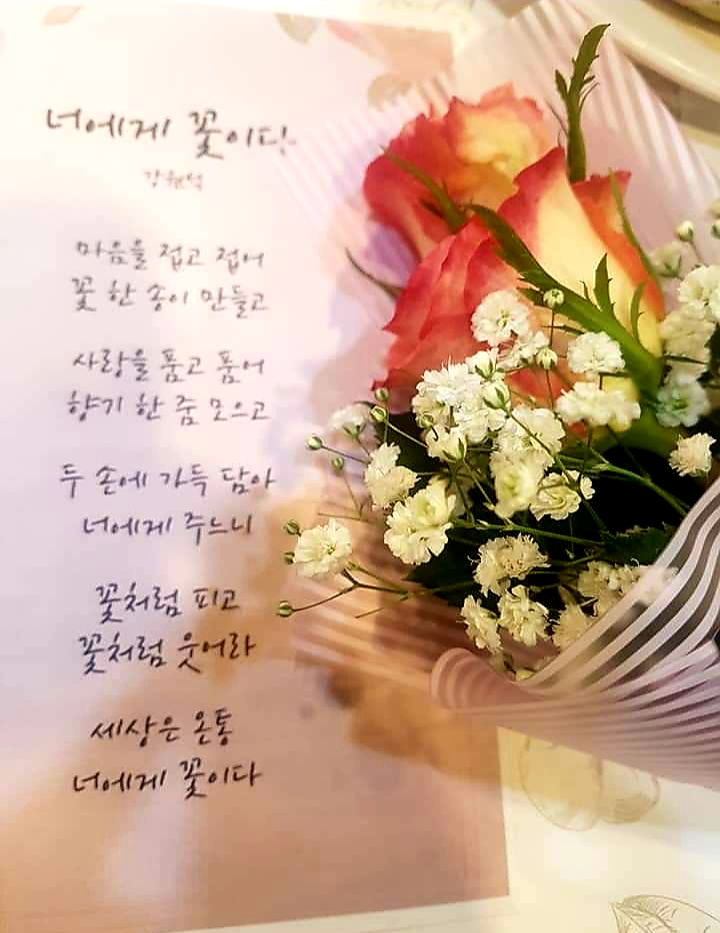 너에게 꽃이다
강원석
마음을 접고 접어
꽃 한 송이 만들고
사랑을 품고 품어
향기 한 줌 모으고
두 손에 가득 담아
너에게 주느니
꽃처럼 피고
꽃처럼 웃어라
세상은 온통
너에게 꽃이다